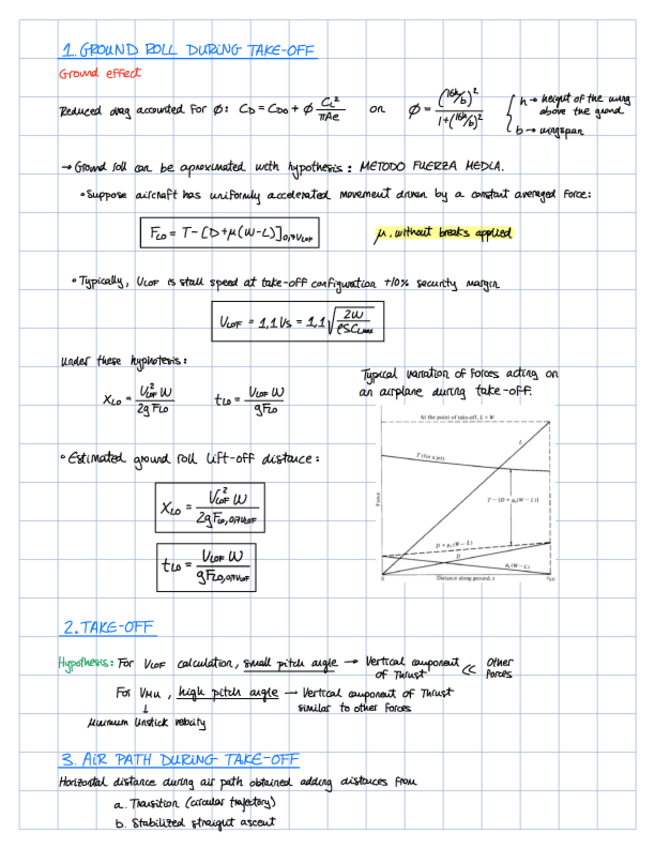 1. GROUND ROLL DURING TAKE-OFF
Ground effect
Reduced drag accounted for Ø: C_D = C_D0 + Ø C_L²/πAe on Ø = (16h/b)²/1+(16h/b)² { h → height of the wing above the ground
b → wingspan
→ Ground roll can be aproximated with hypothesis: METODO FUERZA MEDIA.
• Suppose aircraft has uniformly accelerated movement driven by a constant averaged force:
F_LO = T - [D + μ(W-L)]_0,7V_LOF
μ, without breaks applied
• Typically, V_LOF is stall speed at take-off configuration +10% security margin
V_LOF = 1,1 V_S = 1,1 √(2W/ρSC_Lmax)
Under these hyphotesis:
X_LO = V_LOF² W/2g F_LO t_LO = V_LOF W/g F_LO
Typical variation of forces acting on
an airplane during take-off.
• Estimated ground roll lift-off distance:
X_LO = V_LOF² W/2g F_LO,0,7V_LOF
t_LO = V_LOF W/g F_LO,0,7V_LOF
At the point of take-off, L = W
L
T (for a jet)
Force
T - [D + μ_r(W - L)]
D + μ_r(W - L)
D
μ_r(W - L)
0
Distance along ground, s
s_LO
2. TAKE-OFF
Hypothesis: For V_LOF calculation, small pitch angle → Vertical component of Thrust << Other forces
For V_MU, high pitch angle → Vertical component of Thrust
similar to other forces
↓
Minimum Unstick velocity
3. AIR PATH DURING TAKE-OFF
Horizontal distance during air path obtained adding distances from
a. Transition (circular trajectory)
b. Stabilized straight ascent